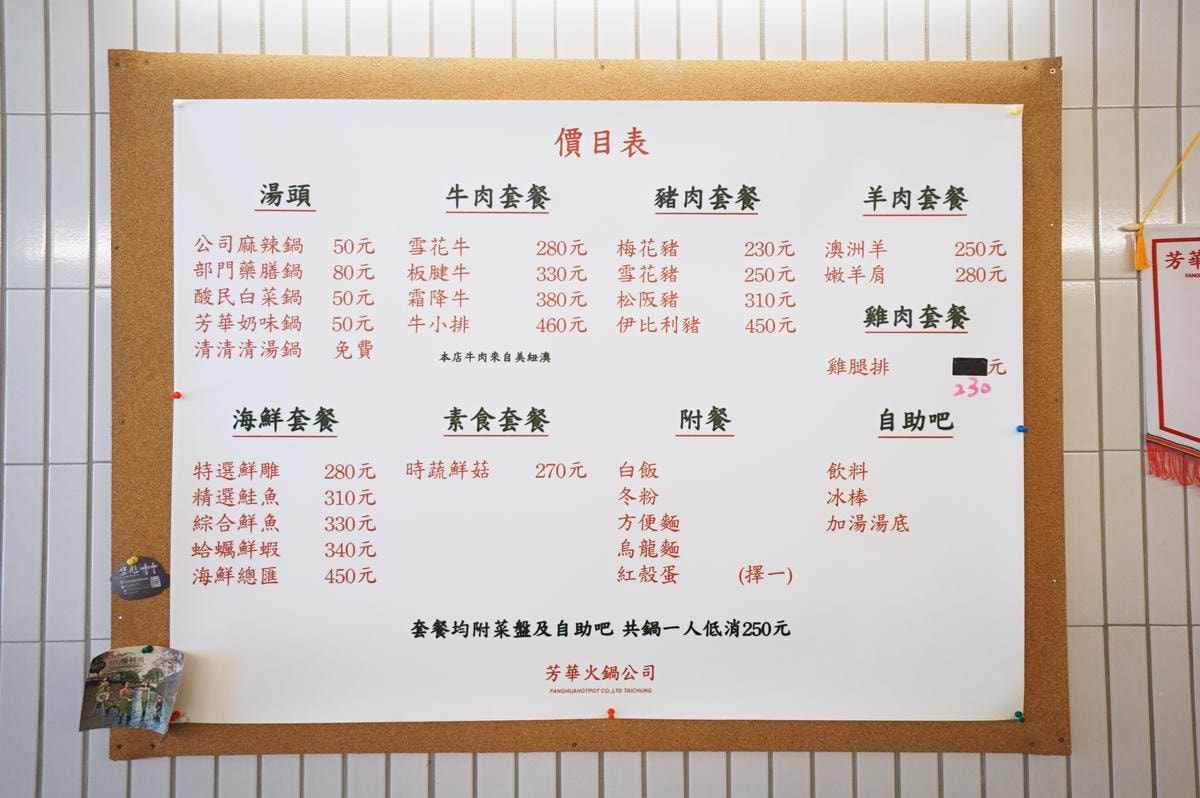 價目表
湯頭
公司麻辣鍋 50元
部門藥膳鍋 80元
酸民白菜鍋 50元
芳華奶味鍋 50元
清清清湯鍋 免費
牛肉套餐
雪花牛 280元
板腱牛 330元
霜降牛 380元
牛小排 460元
本店牛肉來自美紐澳
豬肉套餐
梅花豬 230元
雪花豬 250元
松阪豬 310元
伊比利豬 450元
羊肉套餐
澳洲羊 250元
嫩羊肩 280元
雞肉套餐
雞腿排 元
230
海鮮套餐
特選鮮雕 280元
精選鮭魚 310元
綜合鮮魚 330元
蛤蠣鮮蝦 340元
海鮮總匯 450元
素食套餐
時蔬鮮菇 270元
附餐
白飯
冬粉
方便麵
烏龍麵
紅殼蛋 (擇一)
自助吧
飲料
冰棒
加湯湯底
套餐均附菜盤及自助吧 共鍋一人低消250元
芳華火鍋公司
FANGHUAHOTPOT CO.,LTD TAICHUNG
芳華